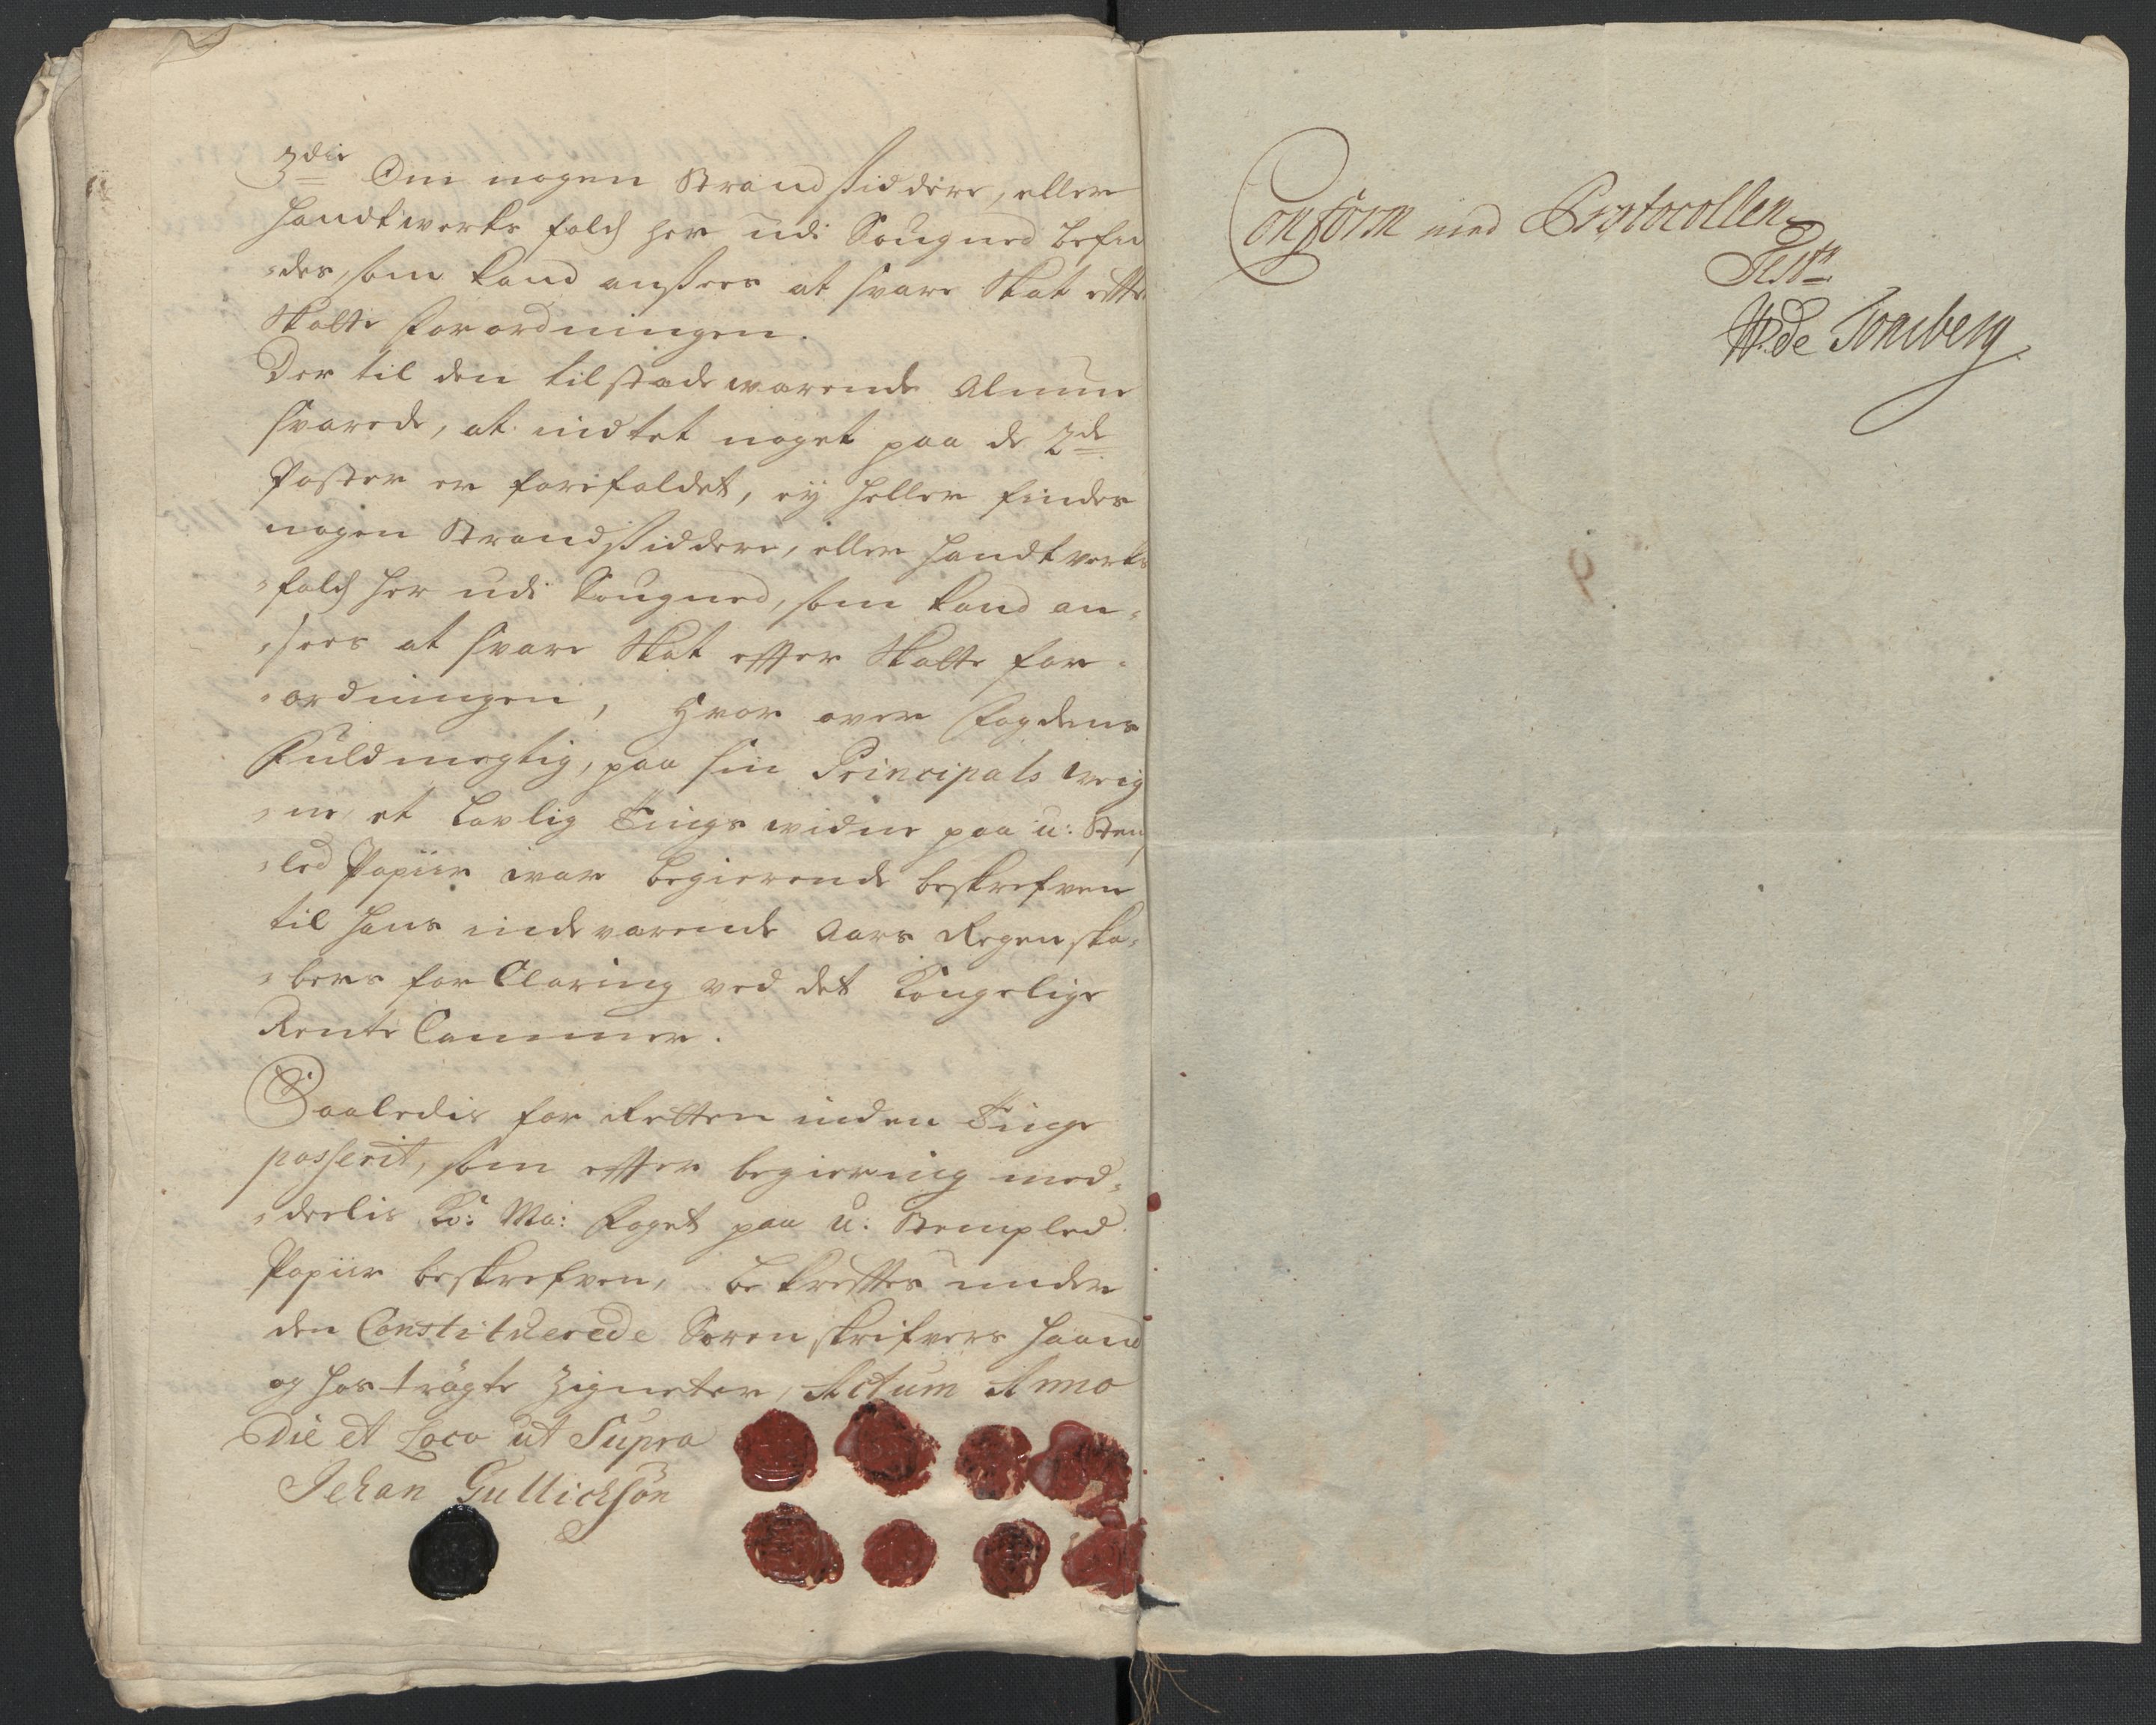 3die Om nogen Strandsiddere, eller
Handtwerks folch her udi Sougned befin
-des, som kand ansees at svare Skat efter
Skatte Forordningen.
Der til den tilstædeværende Almue
svarede, at indtet noget paa de 2de
Poster er forefaldet, ey heller findes
nogen Strandsiddere, eller Handtverks
-folch her udi Sougned, som kand an-
-sees at svare Skat effter Skatte for-
-ordningen, Hvor over Fogdens
Fuldmegtig, paa sin Principals veig
-ne, et Lovlig Tings widne paa u: Stemp
-led Papiir war begierende beskrefven
til hans indeværende Aars Regenska-
-bers for Claring ved det Kongelige
Rente Cammer.
Saaledis for Retten inden Tinge
passerit, som effter begiering med-
-deelis Ko: Ma: Foget paa u: Stempled
Papiir beskrefven, bekreftes under
den Constituerede Sorenskrifvers Haand
og hoströgte Zigneter, Actum Anno
Die et Loco ut Supra
Jehan Gullichsön
Conform med Protocollen
Test:
W: de Tonsberg